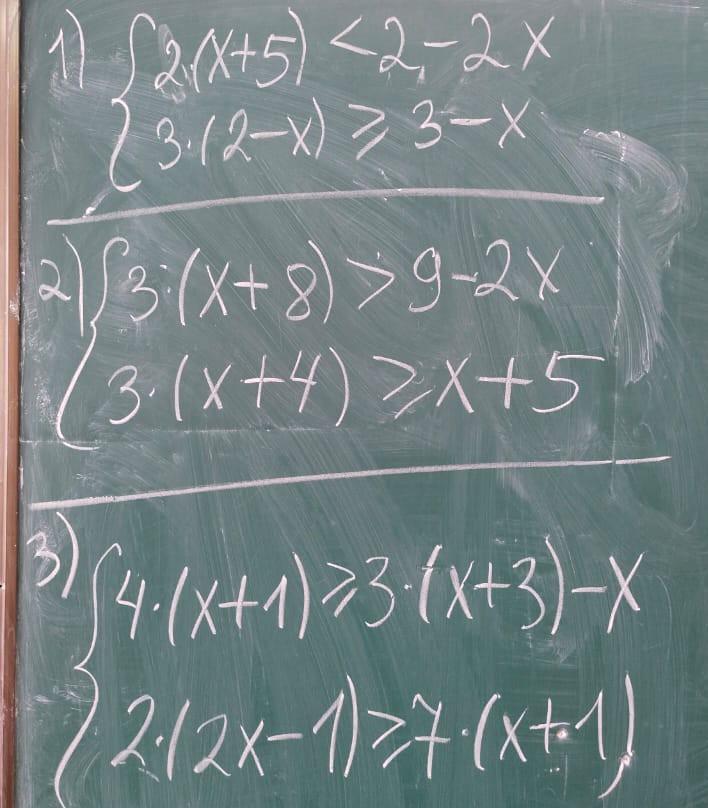 1) { 2·(x+5) < 2-2x
3·(2-x) ⩾ 3-x
2) { 3·(x+8) > 9-2x
3·(x+4) ⩾ x+5
3) { 4·(x+1) ⩾ 3·(x+3)-x
2·(2x-1) ⩾ 7·(x+1)